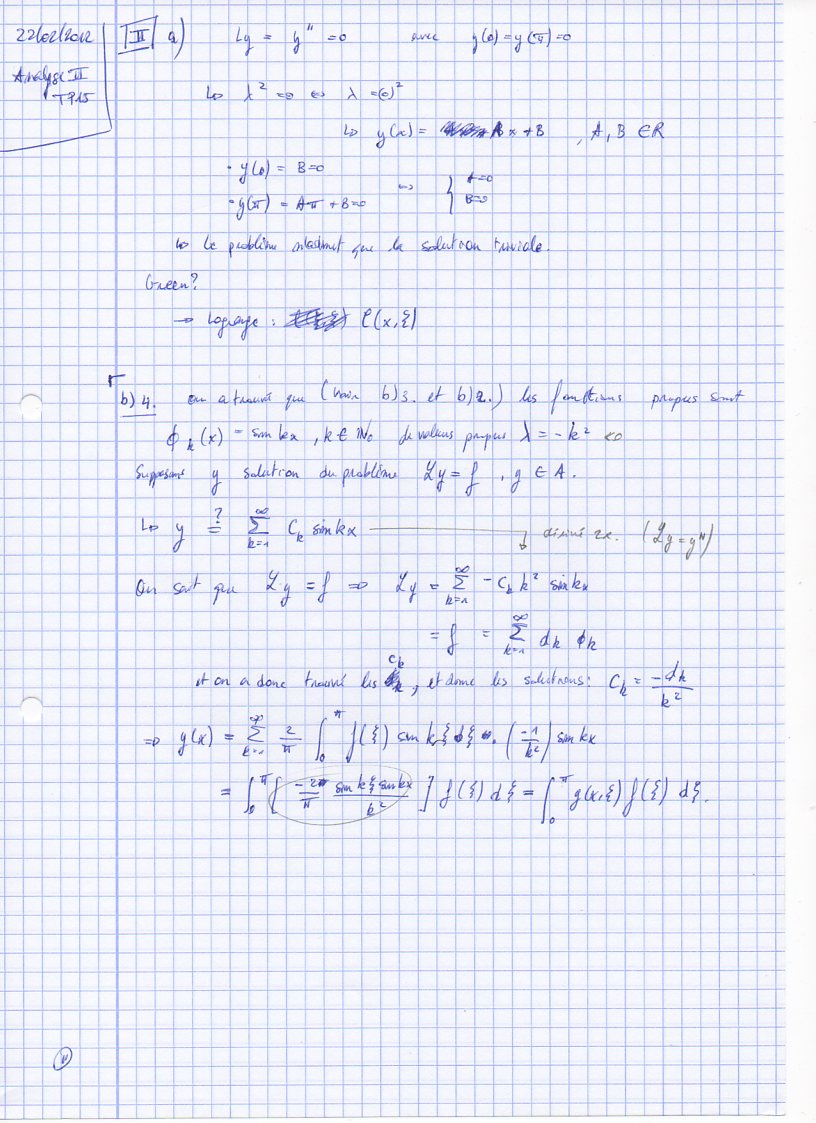 22/02/2012
Analyse II
TP15
III a) Ly = y'' = 0 avec y(0) = y(π) = 0
↳ λ² = 0 ⇔ λ = (0)²
↳ y(x) = Ax + B , A, B ∈ R
· y(0) = B = 0
· y(π) = Aπ + B = 0 ⇔ { A = 0 B = 0
↳ Le problème n'admet que la solution triviale.
Green?
→ Lagrange : C(x, ξ)
b) 4. On a trouvé que (voir b) 3. et b) 2.) les fonctions propres sont
ϕ_k(x) = sin kx , k ∈ N₀ de valeurs propres λ = -k² <0
Supposons y solution du problème Ly = f , y ∈ A.
↳ y ?= Σ_{k=1}^{∞} C_k sin kx → dérivé 2x. (Ly = y'')
On sait que Ly = f ⇒ Ly = Σ_{k=1}^{∞} -C_k k² sin kx
= f = Σ_{k=1}^{∞} d_k ϕ_k
et on a donc trouvé les C_k, et donc les solutions: C_k = -d_k / k²
⇒ y(x) = Σ_{k=1}^{∞} 2/π ∫_0^π f(ξ) sin kξ dξ · (-1/k²) sin kx
= ∫_0^π [ -2/π sin kξ sin kx / k² ] f(ξ) dξ = ∫_0^π g(x,ξ) f(ξ) dξ.